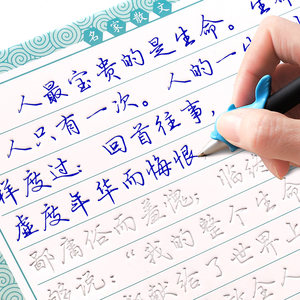 名家散文
人最宝贵的是生命。生命
人只有一次。人的一生
样度过：回首往事，
虚度年华而悔恨
鄙庸俗而羞愧；临终
够说：“我的整个生命
献给了世界上